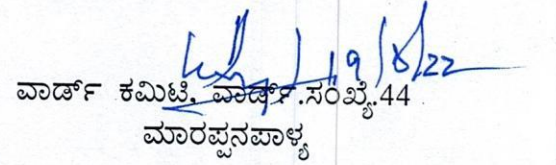 19/8/22
ವಾರ್ಡ್ ಕಮಿಟಿ, ವಾರ್ಡ್.ಸಂಖ್ಯೆ.44
ಮಾರಪ್ಪನಪಾಳ್ಯ